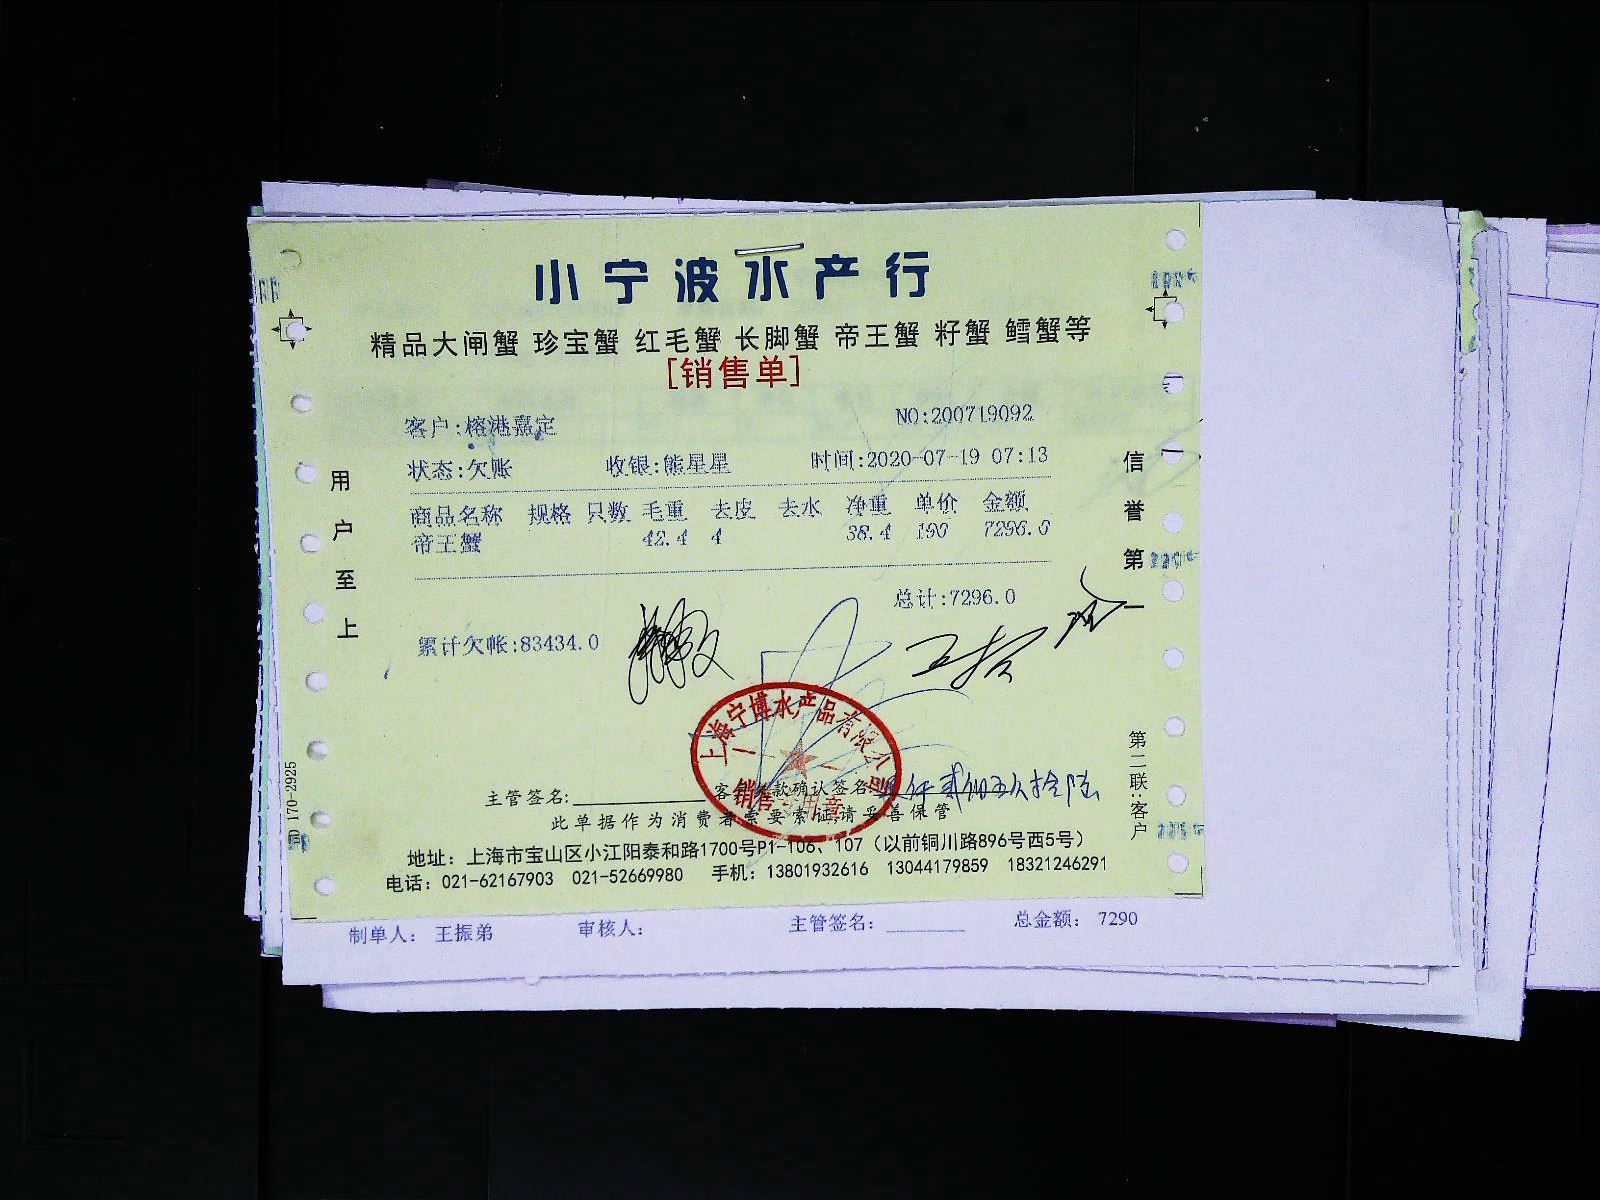 小宁波水产行
精品大闸蟹 珍宝蟹 红毛蟹 长脚蟹 帝王蟹 籽蟹 鳕蟹等
[销售单]
客户:榕港嘉定 NO:200719092
状态:欠账 收银:熊星星 时间:2020-07-19 07:13
商品名称 规格 只数 毛重 去皮 去水 净重 单价 金额
帝王蟹 42.4 4 38.4 190 7296.0
总计:7296.0
累计欠帐:83434.0
用户至上
信誉第一
第二联:客户
170-2925
上海宁博水产品有限公司
销售专用章
主管签名: 客 款确认签名:
此单据作为消费者索要索证,请妥善保管
地址：上海市宝山区小江阳泰和路1700号P1-106、107（以前铜川路896号西5号）
电话：021-62167903 021-52669980 手机：13801932616 13044179859 18321246291
制单人： 王振弟 审核人： 主管签名： 总金额： 7290